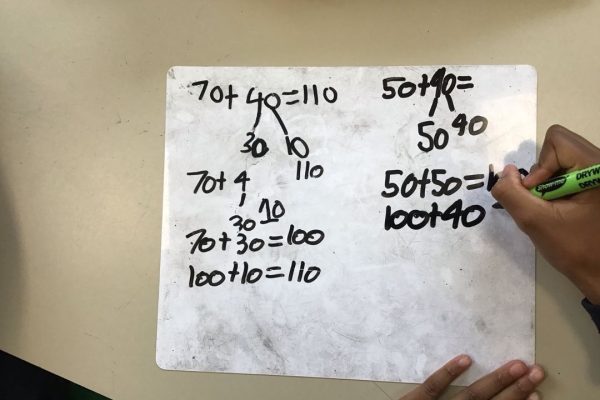 70+40=110
30 10
110
70+4
30 10
70+30=100
100+10=110
50+90=
50 40
50+50=1
100+40
show-me
DRYW
DRYW